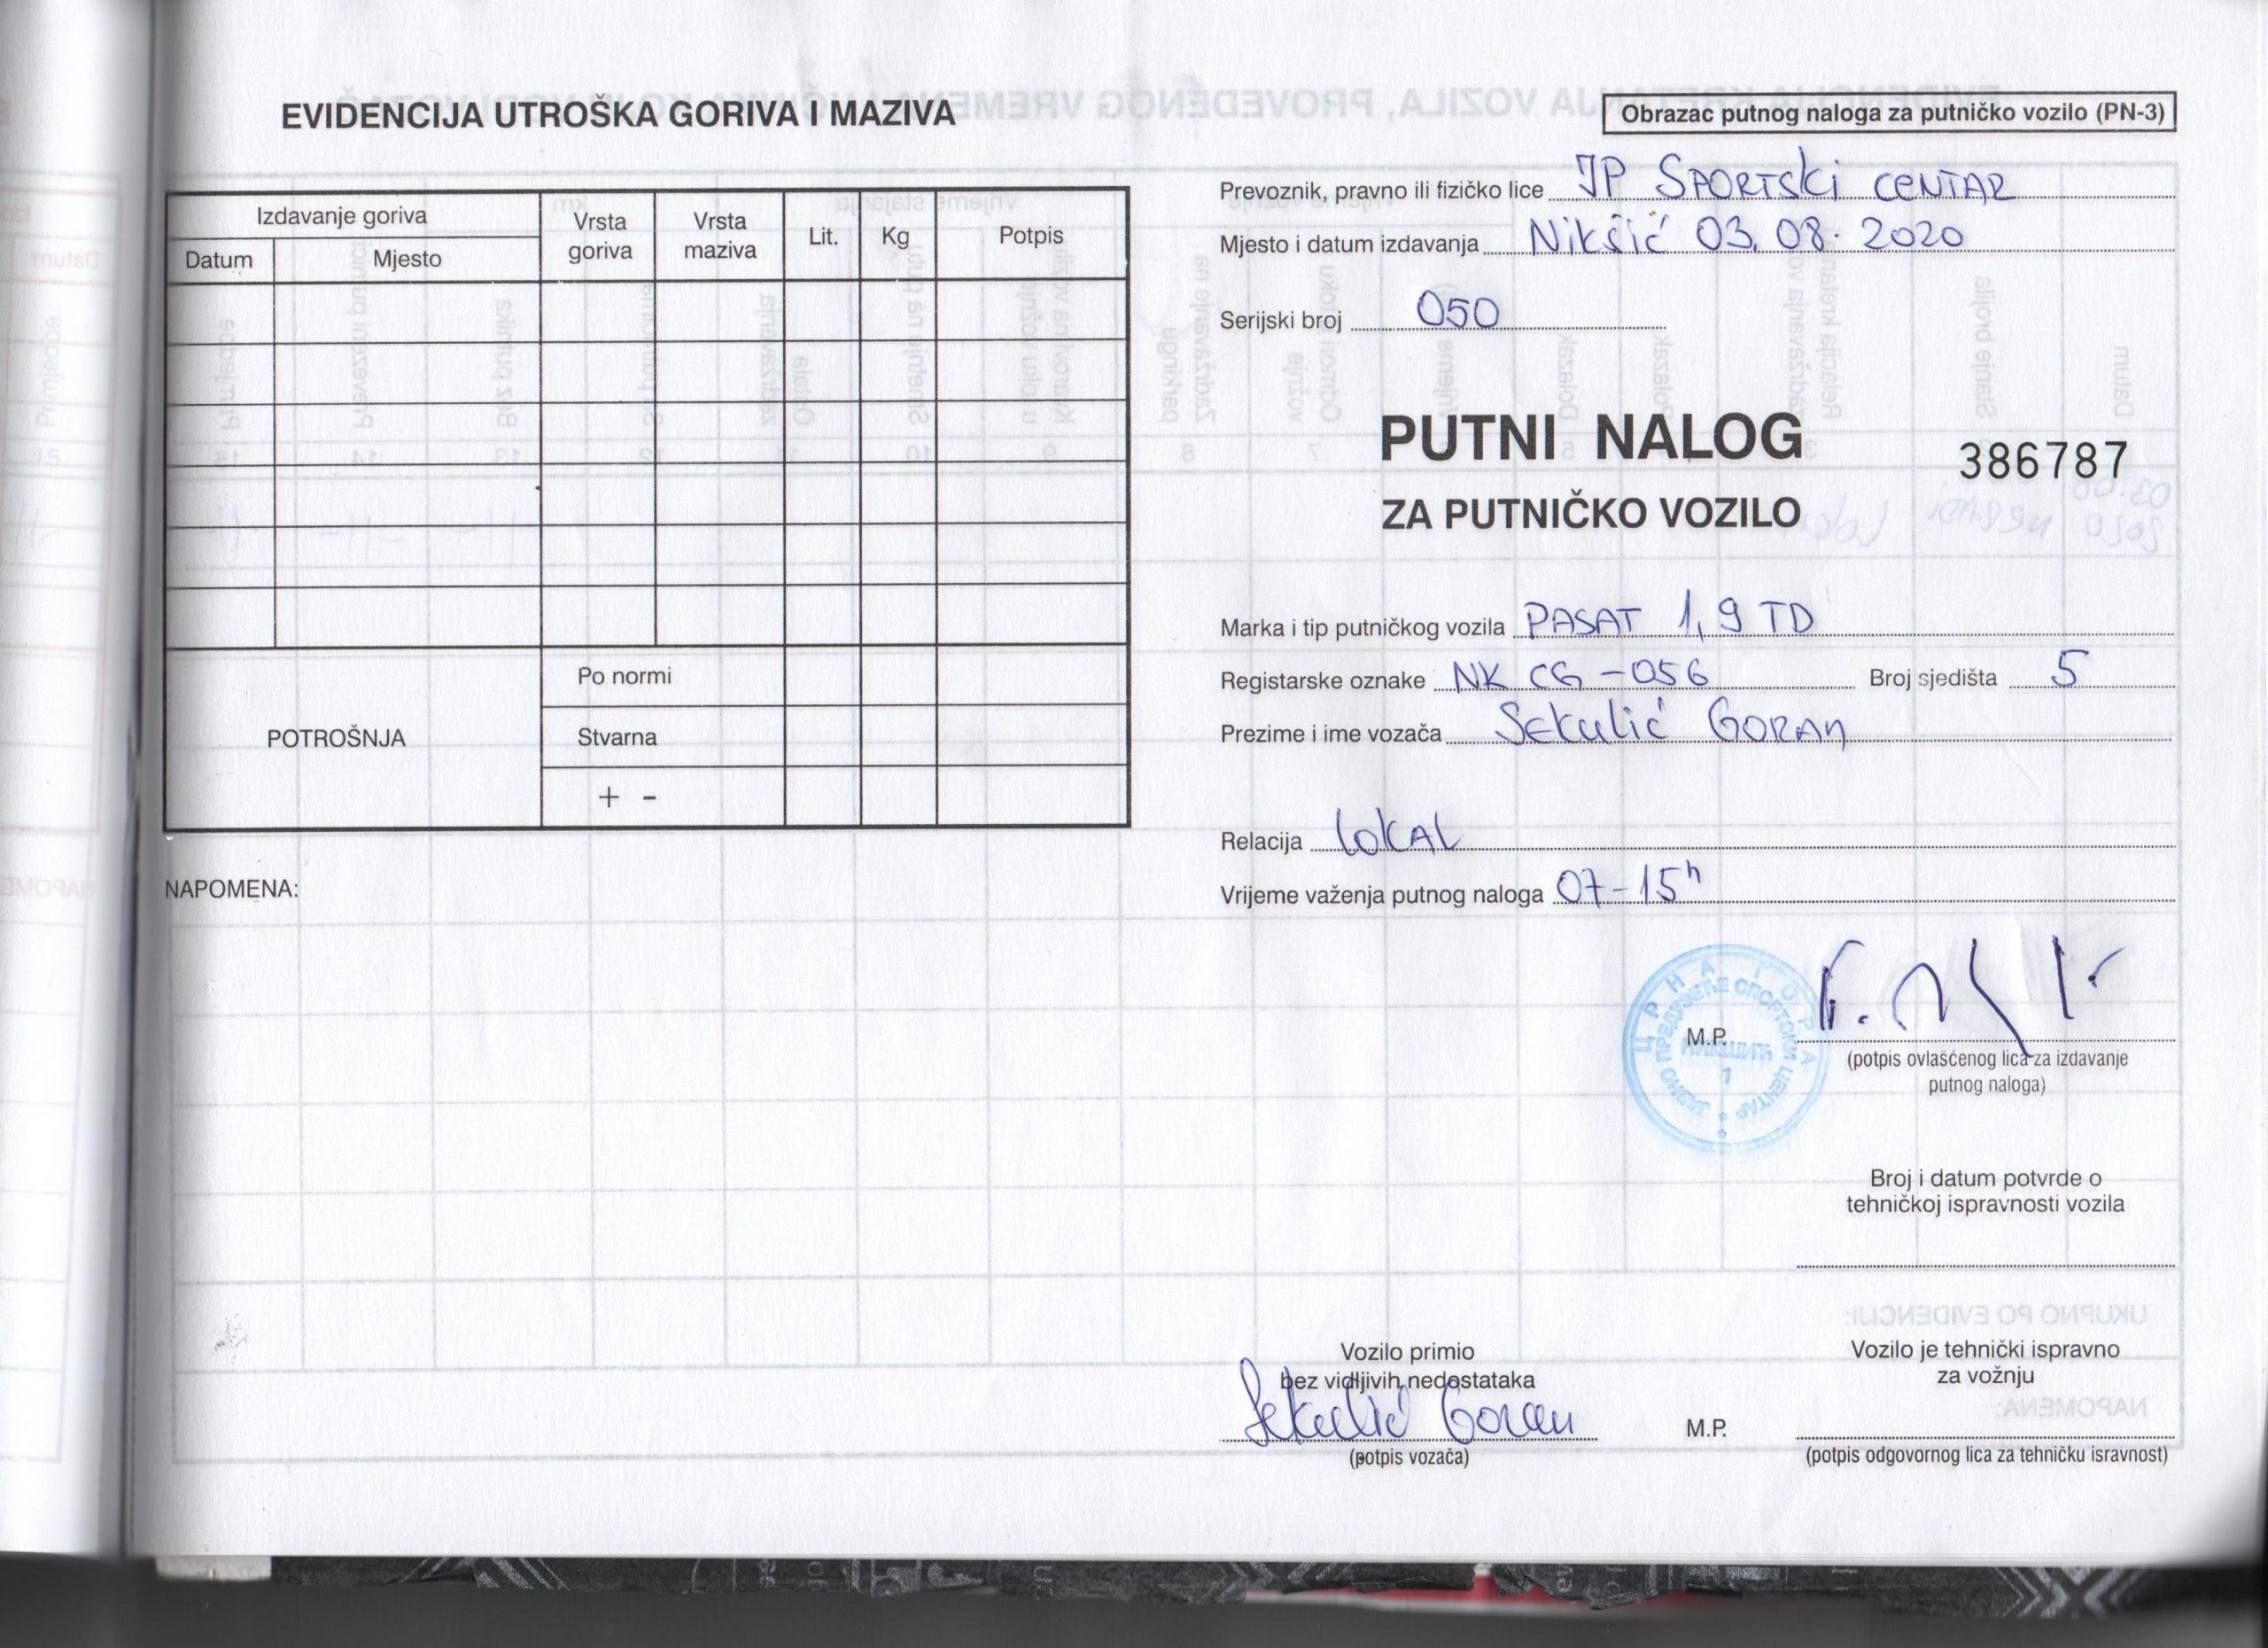 EVIDENCIJA UTROŠKA GORIVA I MAZIVA
Izdavanje goriva
Datum
Mjesto
Vrsta goriva
Vrsta maziva
Lit.
Kg
Potpis
POTROŠNJA
Po normi
Stvarna
+ -
NAPOMENA:
Obrazac putnog naloga za putničko vozilo (PN-3)
Prevoznik, pravno ili fizičko lice JP SPORTSKI CENTAR
Mjesto i datum izdavanja Nikšić 03.08.2020
Serijski broj 050
PUTNI NALOG
386787
ZA PUTNIČKO VOZILO
Marka i tip putničkog vozila PASAT 1,9 TD
Registarske oznake NK CG-056 Broj sjedišta 5
Prezime i ime vozača Sekulić GORAN
Relacija LOKAL
Vrijeme važenja putnog naloga 07-15h
ЦРНА ГОРА
ЈАВНО ПРЕДУЗЕЋЕ СПОРТСКИ ЦЕНТАР
НИКШИЋ
1
M.P.
(potpis ovlašćenog lica za izdavanje
putnog naloga)
Broj i datum potvrde o
tehničkoj ispravnosti vozila
Vozilo primio
bez vidljivih nedostataka
Sekulić Goran
(potpis vozača)
M.P.
Vozilo je tehnički ispravno
za vožnju
(potpis odgovornog lica za tehničku isravnost)